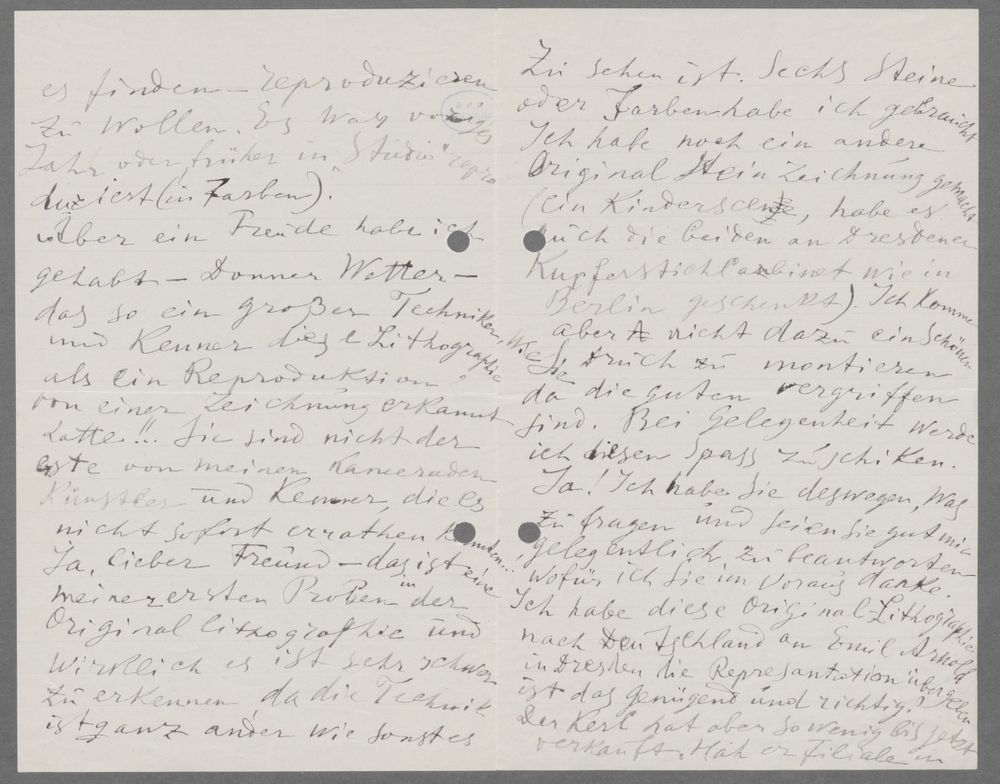 es finden – reproduzieren
zu wollen. Es war voriges
Jahr oder früher in "Studio" repro
duziert (in Farben).
Aber ein Freude habe ich
gehabt – Donner Wetter –
das so ein großer Techniker,
und Kenner diese Lithographie
als ein Reproduktion
von einer Zeichnung erkannt
hatte!!! Sie sind nicht der
erste von meinen Kameraden
Künstler und Kenner, die es
nicht sofort errathen konnten...
Ja, lieber Freund – das ist eine
meiner ersten Proben in der
Original lithographie und
wirklich es ist sehr schwer
zu erkennen da die Technik
ist ganz ander wie sonst es
zu sehen ist. Sechs Steine
oder Farben habe ich gebraucht
Ich habe noch ein andere
Original Steinzeichnung gemacht
(ein Kinderscene, habe es
auch die beiden an Dresdener
Kupferstichcabinet wie in
Berlin geschenkt). Ich komme
aber nicht dazu ein schönen
Druck zu montieren
da die guten vergriffen
sind. Bei Gelegenheit werde
ich diesen Spass zuschiken.
Ja! Ich habe Sie deswegen, was
zu fragen und seien Sie gut mir
gelegentlich zu beantworten
wofür ich Sie im Voraus danke.
Ich habe diese Original-Lithographien
nach Deutschland an Emil Arnold
in Dresden die Represantation übergeben
ist das genügend und richtig?
Der Kerl hat aber so wenig bis jetzt
verkauft. Hat er filiale in